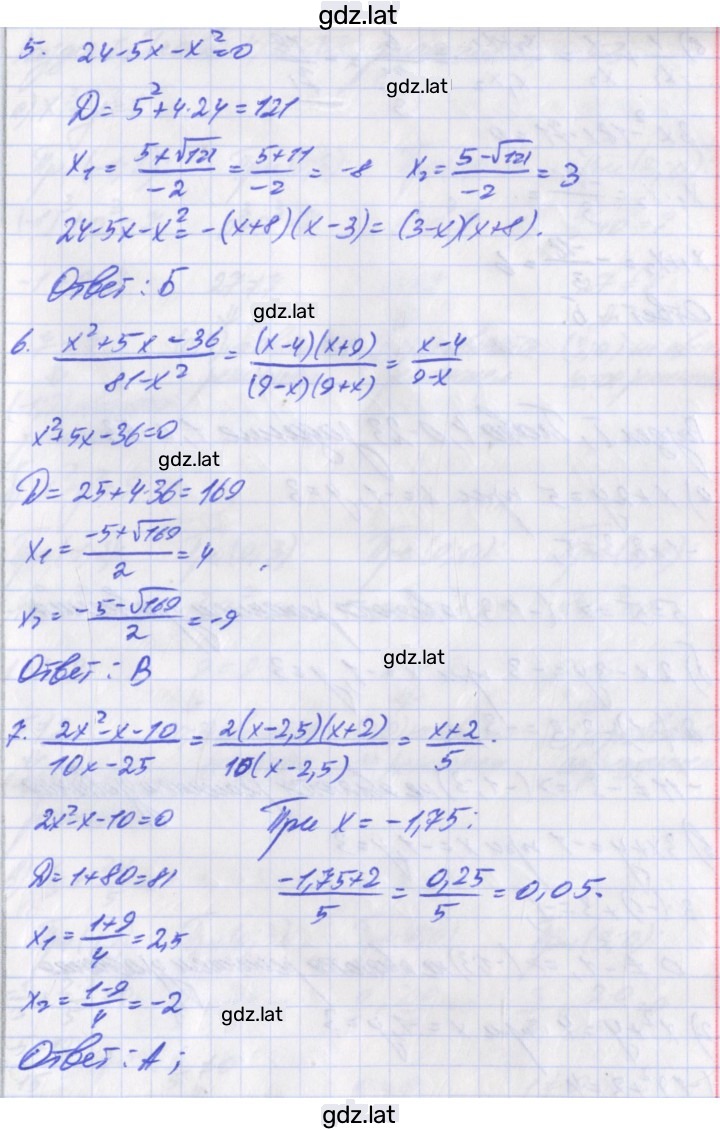 gdz.lat
5. 24-5x-x²=0
gdz.lat
D= 5²+4·24=121
x₁ = (5+√121)/(-2) = (5+11)/(-2) = -8 x₂ = (5-√121)/(-2) = 3
24-5x-x² = -(x+8)(x-3) = (3-x)(x+8).
Ответ: Б
gdz.lat
6. (x²+5x-36)/(81-x²) = ((x-4)(x+9))/((9-x)(9+x)) = (x-4)/(9-x)
x²+5x-36=0
gdz.lat
D= 25+4·36=169
x₁ = (-5+√169)/2 = 4 ;
x₂ = (-5-√169)/2 = -9
gdz.lat
Ответ: В
7. (2x²-x-10)/(10x-25) = (2(x-2,5)(x+2))/(10(x-2,5)) = (x+2)/5.
2x²-x-10=0 При x = -1,75:
D=1+80=81 (-1,75+2)/5 = 0,25/5 = 0,05.
x₁ = (1+9)/4 = 2,5
x₂ = (1-9)/4 = -2
gdz.lat
Ответ: А;
gdz.lat